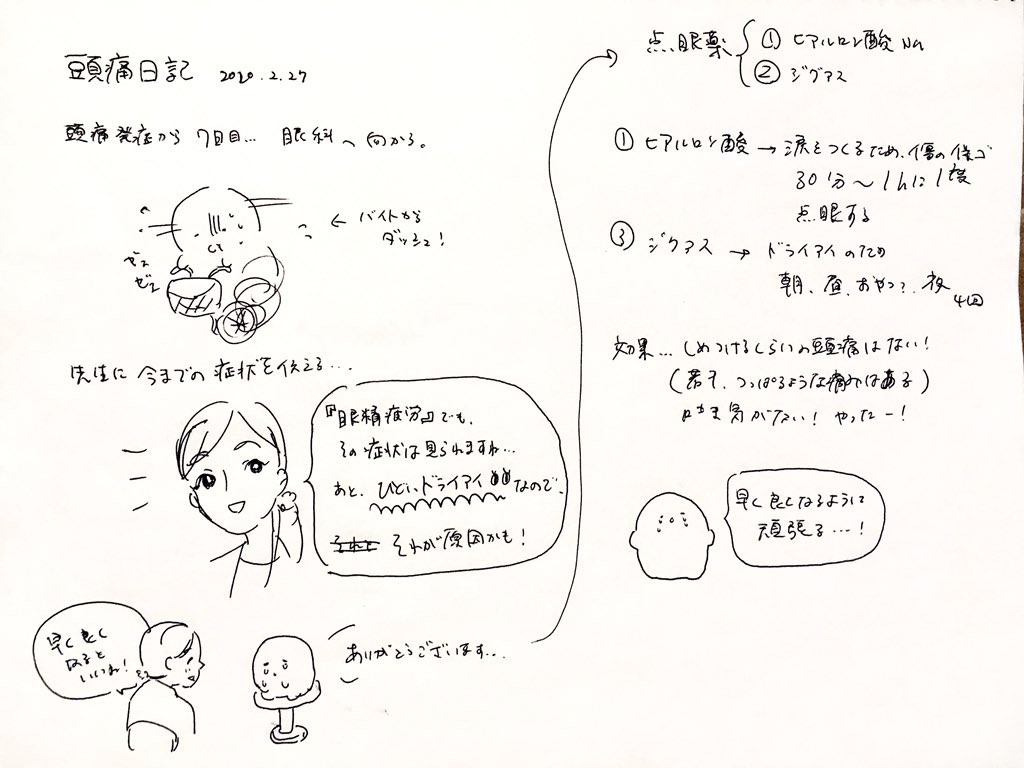 頭痛日記 2020.2.27
頭痛発症から 7日目… 眼科へ向かう。
← バイトから
ダッシュ!
ゼェ
ゼェ
先生に 今までの 症状を伝える…
『眼精疲労』でも、
その症状は見られますね…
あと、ひどいドライアイなので、
それが原因かも!
早く良く
なると
いいね!
ありがとうございます…
点眼薬 ① ヒアルロン酸Na
② ジクアス
① ヒアルロン酸 → 涙をつくるため、傷の保ゴ
30分〜1hに1度
点眼する
③ ジクアス → ドライアイのため
朝、昼、おやつ?、夜
4回
効果… しめつけるくらいの頭痛はない!
(若干、つっぱるような痛みはある)
吐き気がない! やったー!
早く良くなるように
頑張る…!